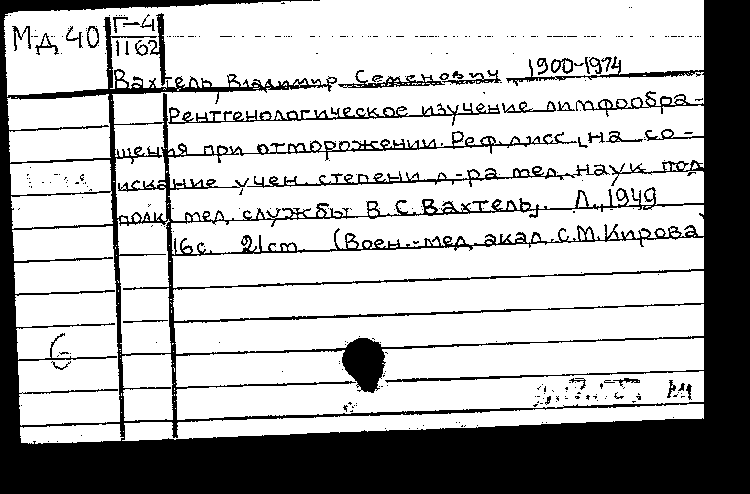 Мд 40
Г-4
1162
Вахтель, Владимир Семенович, 1900-1974
Рентгенологическое изучение лимфообра-
щения при отморожении. Реф. дисс. на со-
искание учен. степени д-ра мед. наук под-
полк. мед. службы В.С. Вахтель. Л., 1949.
16 с. 21 см. (Воен.-мед. акад. С.М. Кирова)
6